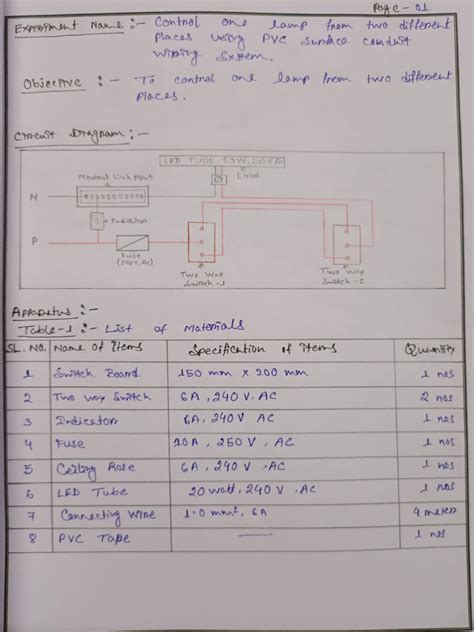 Page - 01
Experiment Name :- Control one lamp from two different
places using PVC surface conduit
wiring system.
Objective :- To control one lamp from two different
places.
Circuit Diagram :-
LED TUBE 20W, 240V AC
Neutral Link
Load
N
Indicator
P
Fuse
(250V, AC)
Two Way
Switch-1
Two Way
Switch-2
Apparatus :-
Table-1 :- List of Materials
SL. NO. Name of Items Specification of Items Quantity
1 Switch Board 150 mm x 200 mm 1 nos
2 Two way Switch 6A, 240 V, AC 2 nos
3 Indicator 6A, 240 V, AC 1 nos
4 Fuse 10A, 250 V, AC 1 nos
5 Ceiling Rose 6A, 240 V, AC 1 nos
6 LED Tube 20 watt, 240 V, AC 1 nos
7 Connecting Wire 1.0 mm², 6A 4 meter
8 PVC Tape — 1 nos